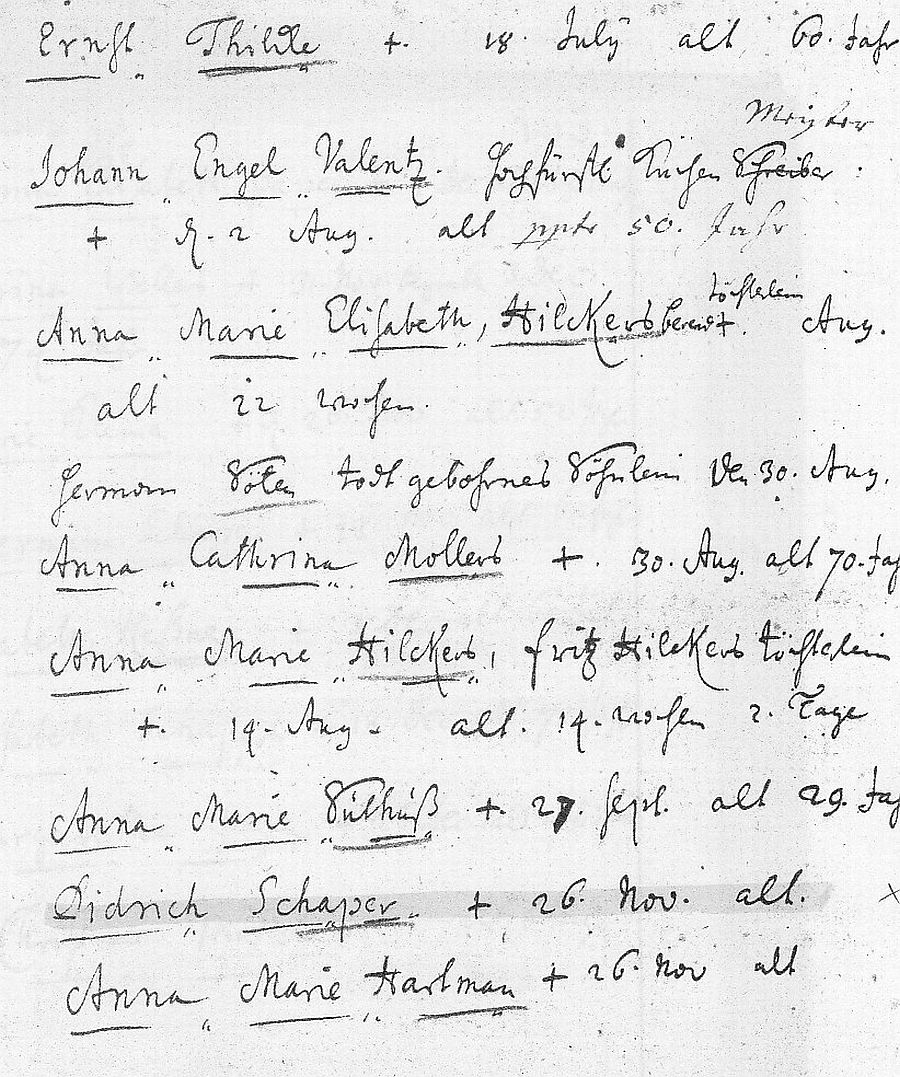 Ernst Thilke +. 18. July alt 60. Jahr
Meister
Johann Engel Valentz. Hochfürstl Küchen Schreiber.
+ d. 2 Aug. alt pptr 50. Jahr
töchterlein
Anna Marie Elisabeth, Hilckers +. Aug.
alt 22 wochen.
Herman todt gebohrnes Söhnlein den 30. Aug.
Anna Cathrina Mollers +. 30. Aug. alt 70. Jah
Anna Marie Hilckers, fritz Hilckers töchterlein
+. 14. Aug. alt. 14. wochen 2. Tage
Anna Marie + 27. Sept. alt 29. Jah
Didrich Schaper + 26. Nov. alt.
Anna Marie Hartman + 26. Nov alt